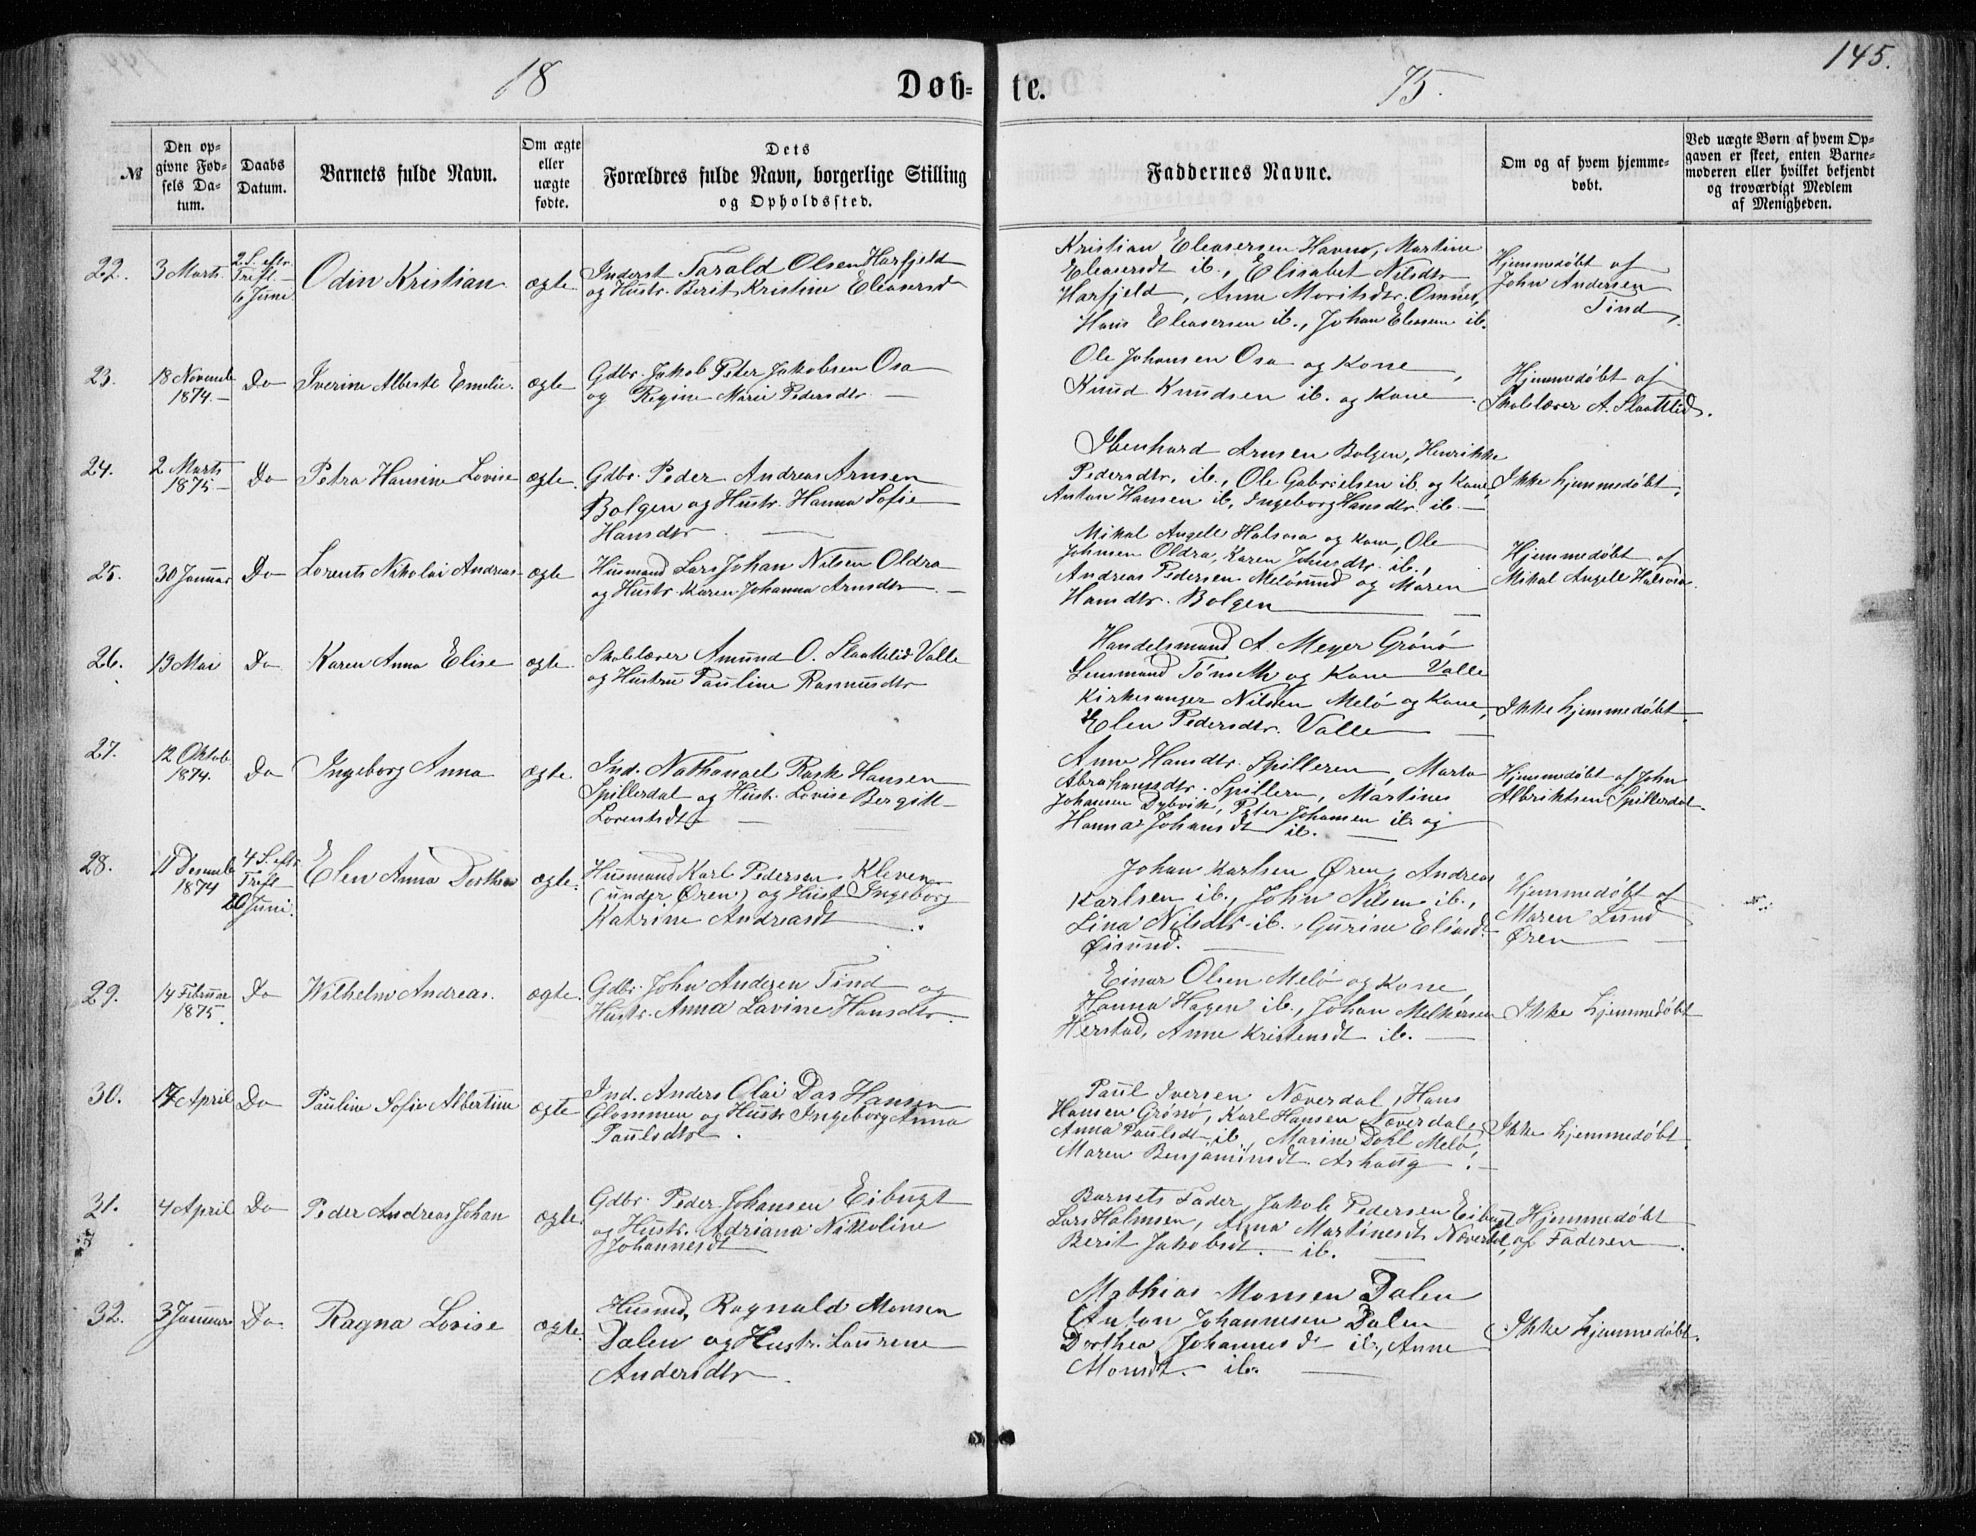 145.
18 Døb- te. 75.
№
Den op-
givne Fød-
sels Da-
tum.
Daabs
Datum.
Barnets fulde Navn.
Om ægte
eller
uægte
fødte.
Dets
Forældres fulde Navn, borgerlige Stilling
og Opholdssted.
Faddernes Navne.
Om og af hvem hjemme-
døbt.
Ved uægte Børn af hvem Op-
gaven er skeet, enten Barne-
moderen eller hvilket bekjendt
og troværdigt Medlem
af Menigheden.
22.
3 Marts
2. S. eftr.
Trift.
6 Juni
Odin Kristian
ægte
Inderst Tarald Olsen Harfjeld
og Hustr. Berit Kristine Eleasersd
Kristian Eleasersen Havnø, Martine
Eleasersdt ib., Elisabet Nilsdtr
Harfjeld, Anne Moritsdtr. Omnes,
Hans Eleasersen ib., Johan Eleasen ib.
Hjemmedøbt af
John Andersen
Tind
23.
18 Novemb
1874.
Do
Iverine Alberte Emelie.
ægte
Gdbr. Jakob Peter Jakobsen Osa
og Regine Marie Pedersdtr.
Ole Johansen Osa og Kone,
Knud Knudsen ib. og Kone.
Hjemmedøbt af
Skolelærer A. Slaattlid.
24.
2 Marts
1875
Do
Petra Hansine Lovise
ægte.
Gdbr. Peder Andreas Arnsen
Bolgen og Hustr. Hanna Sofie
Hansdtr
Ibenhard Arnsen Bolgen, Henrikke
Pedersdtr. ib., Ole Gabrielsen ib. og Kone,
Anton Hansen ib, Ingeborg Hansdtr. ib.
Ikke hjemmedøbt.
25.
30 Januar
Do
Lorents Nikolai Andreas
ægte
Husmand Lars Johan Nilsen Oldra
og Hustr. Karen Johanna Arnsdtr.
Mikal Angell Halsosa og Kone, Ole
Johnsen Oldra, Karen Johnsdtr. ib.,
Andreas Pedersen Meløsund og Maren
Hansdtr. Bolgen
Hjemmedøbt af
Mikal Angell Halsosa
26.
13 Mai
Do
Karen Anna Elise
ægte
Skolelærer Amund O. Slaattlid Valle
og Hustru Pauline Rasmusdtr
Handelsmand A. Meyer Grönö
Lensmand Tönseth og Kone Valle
Kirkesanger Nilsen Melö og Kone,
Elen Pedersdtr. Valle
Ikke hjemmedøbt.
27.
12 Oktob
1874.
Do
Ingeborg Anna
ægte.
Ind. Nathanael Rask Hansen
Spillerdal og Hustr. Lovise Bergitt
Lorentsdtr
Anne Hansdtr. Spilleren, Marta
Abrahamsdtr. Spilleren, Martines
Johansen Dybvik, Peter Johansen ib. og
Hanna Johansdt ib.
Hjemmedøbt af John
Albriktsen Spillerdal.
28.
11 Desemb
1874
4 S. eftr.
Trift
20 Juni.
Elen Anna Dorthea
ægte.
Husmand Karl Pedersen Kleven
(under Øren) og Hust Ingeborg
Katrine Andreasdt
Johan Karlsen Øren, Andreas
Karlsen ib., John Nilsen ib.,
Lina Nilsdtr. ib., Gurine Eliasdt
Øisund.
Hjemmedøbt af
Maren Lund
Øren
29.
14 Februar
1875.
Do
Wilhelm Andreas.
ægte.
Gdbr. John Andersen Tind og
Hustr. Anna Lavine Hansdtr.
Einar Olsen Melö og Kone
Hanna Hagen ib., Johan Melkersen
Herstad, Anne Kristensdt ib.
Ikke hjemmedøbt
30.
17 April
Do
Pauline Sofie Albertine
ægte
Ind. Anders Olai Das Hansen
Glommen og Hustr Ingeborg Anna
Paulsdtr.
Paul Iversen Næverdal, Hans
Hansen Grönö, Karl Hansen Næverdal,
Anna Paulsdt ib., Marine Dahl Melö,
Maren Benjaminsdt. Arhaug.
Ikke hjemmedøbt.
31.
4 April
Do
Peder Andreas Johan
ægte.
Gdbr. Peder Johansen Eibugt
og Hustr. Adriana Nikoline
Johannesdt
Barnets Fader, Jakob Pedersen Eibugt
Lars Halmsen, Anna Martinesdt Næverdal,
Berit Jakobsdt. ib.
Hjemmedøbt
af Faderen
32.
3 Januar
Do
Ragna Lovise
ægte.
Husmd. Ragnald Monsen
Dalen og Hustr. Laurene
Andersdtr.
Mathias Monsen Dalen
Anton Johannesen Dalen
Dorthea Johannesd ib., Anne
Monsdt. ib.
Ikke hjemmedøbt.